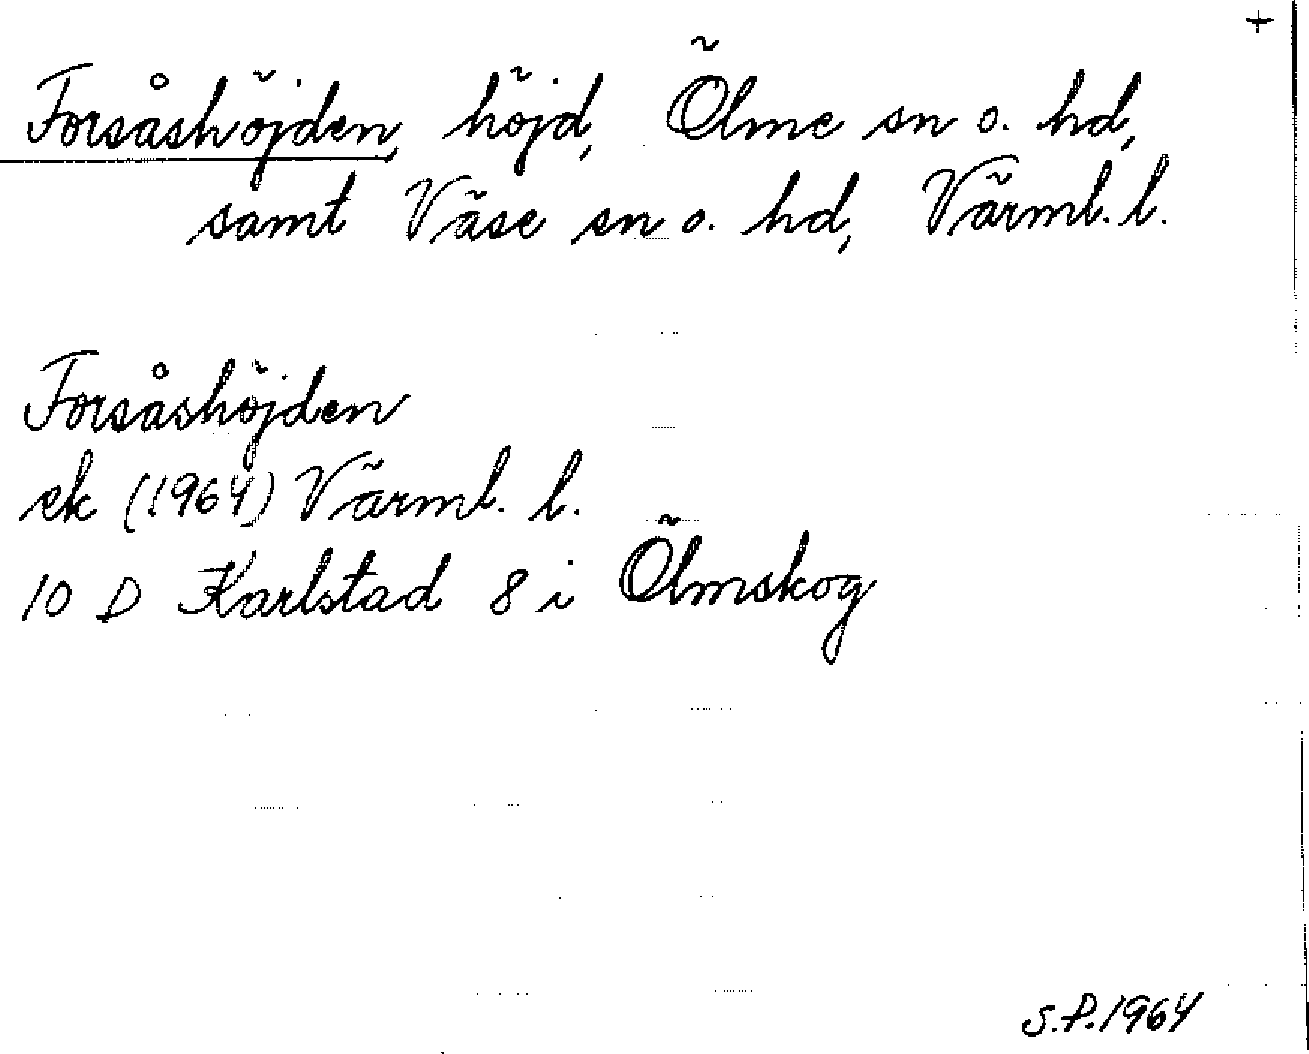 +
Forsåshöjden, höjd, Ölme sn o. hd,
samt Väse sn o. hd, Värml. l.
Forsåshöjden
ek (1964) Värml. l.
10 D Karlstad 8 i Ölmskog
S.P. 1964